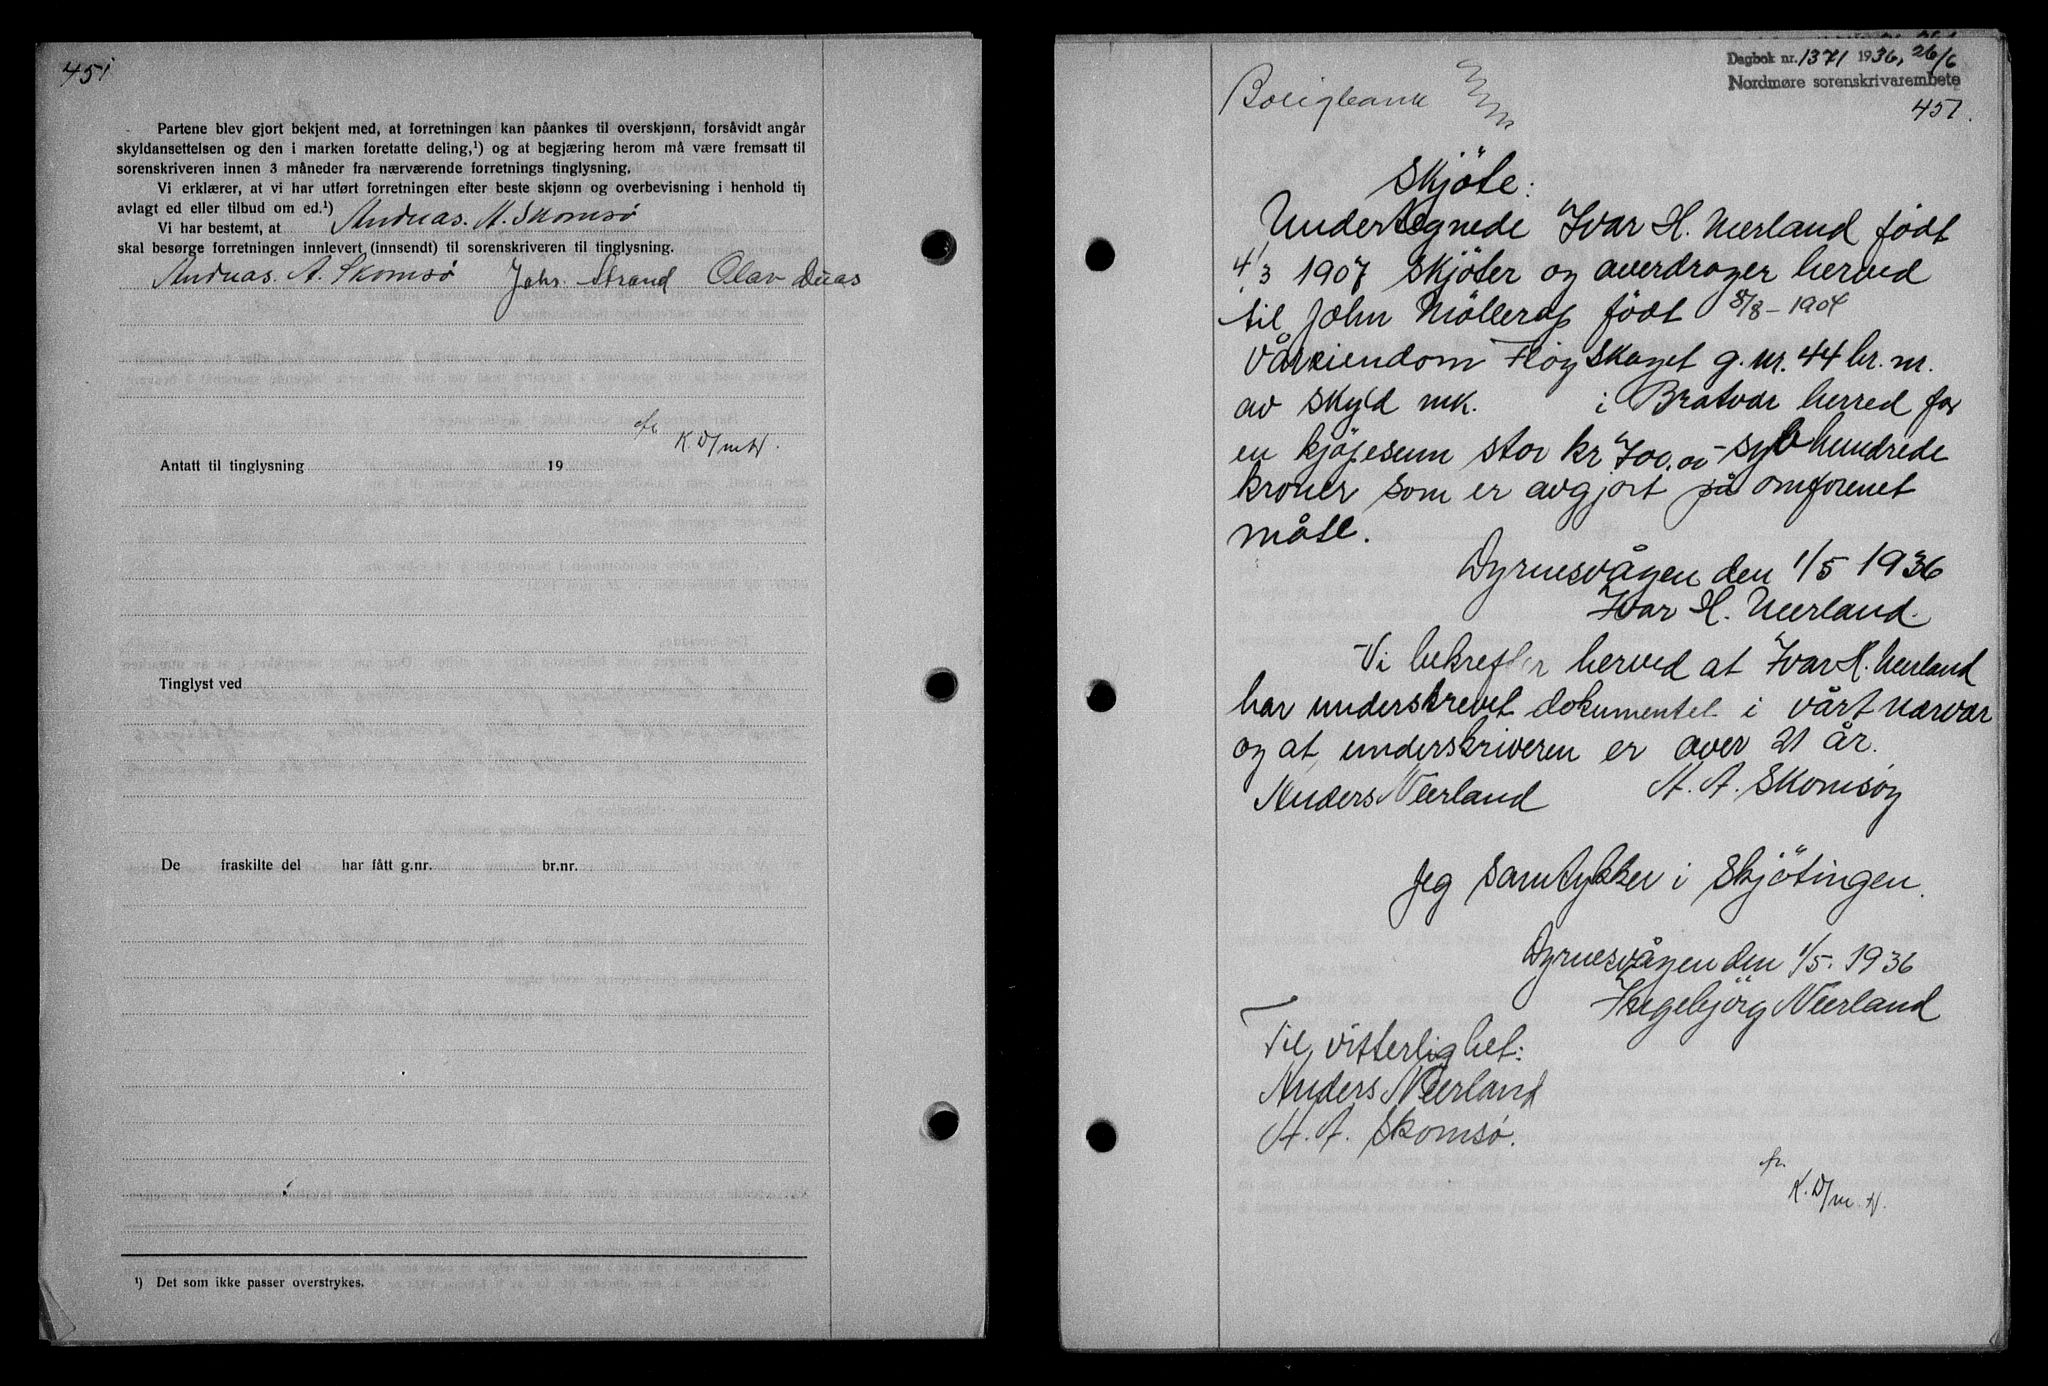 451
Partene blev gjort bekjent med, at forretningen kan påankes til overskjønn, forsåvidt angår
skyldansettelsen og den i marken foretatte deling,¹) og at begjæring herom må være fremsatt til
sorenskriveren innen 3 måneder fra nærværende forretnings tinglysning.
Vi erklærer, at vi har utført forretningen efter beste skjønn og overbevisning i henhold til
avlagt ed eller tilbud om ed.¹)
Vi har bestemt, at Andreas. A. Skomsø
skal besørge forretningen innlevert (innsendt) til sorenskriveren til tinglysning.
Andreas. A. Skomsø Johs. Strand Olav
K. D/m H.
Antatt til tinglysning 19
Tinglyst ved
De fraskilte del har fått g.nr. br.nr.
¹) Det som ikke passer overstrykes.
Dagbok nr. 1371 1936, 26/6
Nordmøre sorenskrivarembete
Boligbank
451.
Skjöte:
Undertegnede Ivar H. Neerland født
4/3 1907 skjöter og overdrager herved
til John Möllerop födt 8/8-1904
vår eiendom Fløyskaget g. nr. 44 br. nr.
av skyld mk. i Bratvær herred for
en kjöpesum stor kr 700,00 - syv hundrede
kroner som er avgjort på omforenet
måte.
Dyrnesvågen den 1/5 1936
Ivar H. Neerland.
Vi bekrefter herved at Ivar H. Neerland
har underskrevet dokumentet i vårt nærvær
og at underskriveren er over 21 år.
Anders Neerland A. A. Skomsøy
Jeg samtykker i Skjötingen.
Dyrnesvågen den 1/5. 1936
Ingebjörg Neerland
Til vitterlighet:
Anders Neerland
A. A. Skomsø.
K. D/m. H.